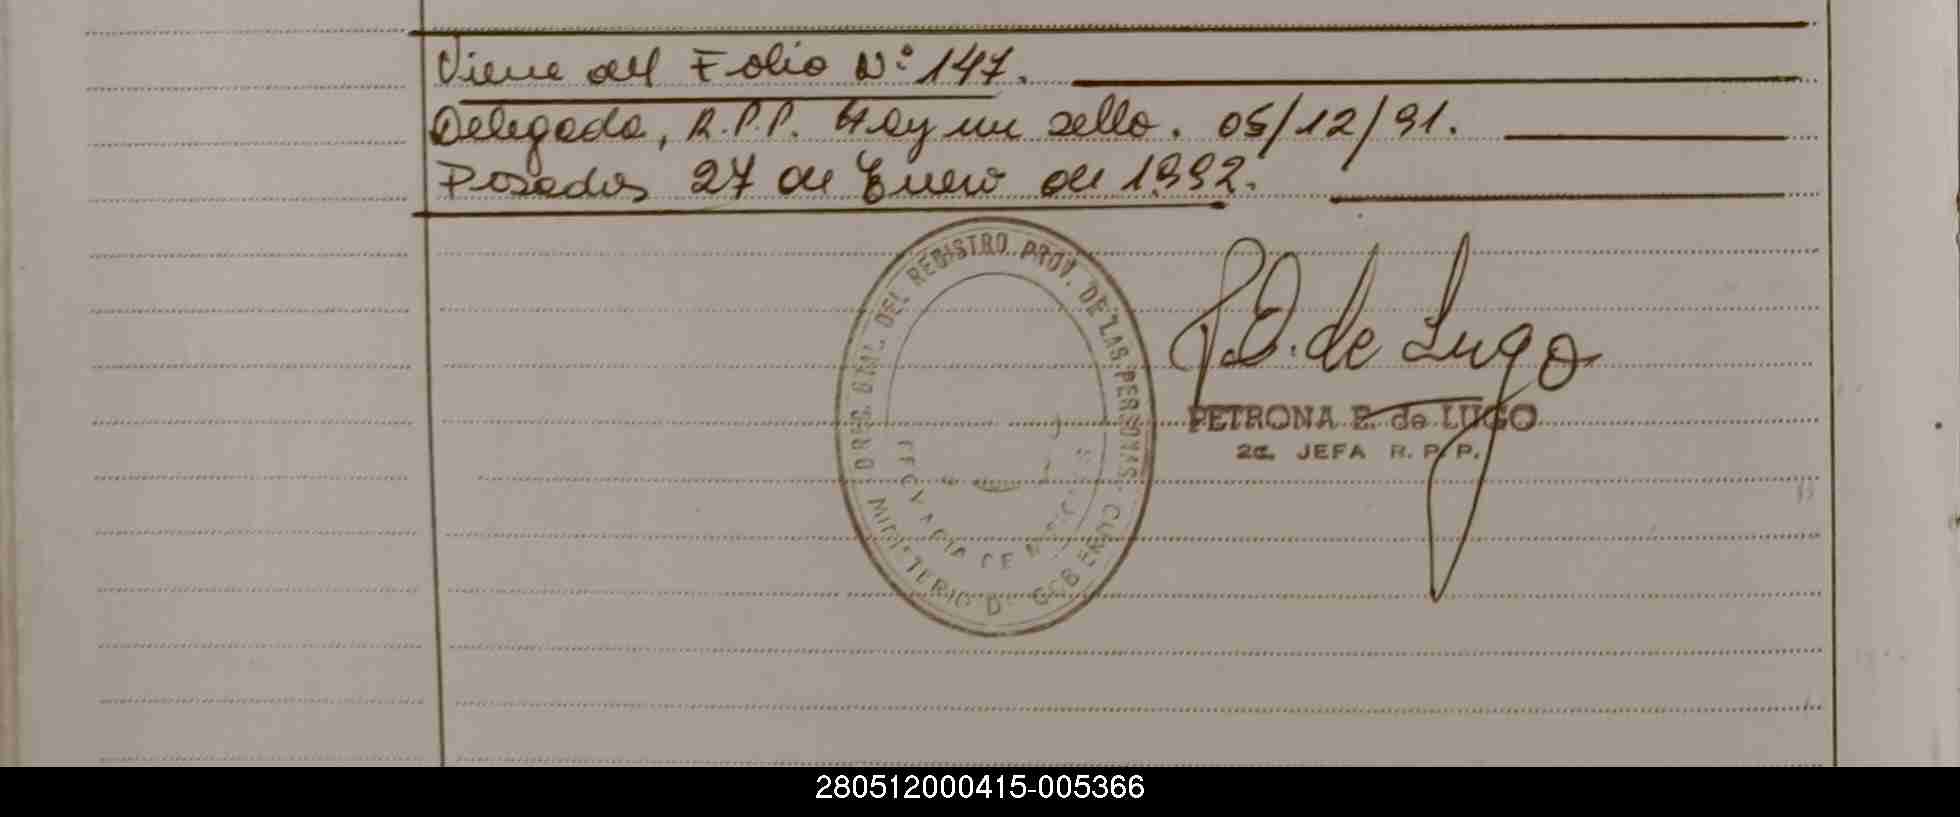 Viene del Folio N° 147.
Delegada, R.P.P. Hay un sello. 05/12/91.
Posadas 27 de Enero de 1.992.
DEL REGISTRO PROV. DE LAS PERSONAS
MINISTERIO DE GOBIERNO
P.E. de Lugo
PETRONA E. de LUGO
2a. JEFA R. P. P.
280512000415-005366